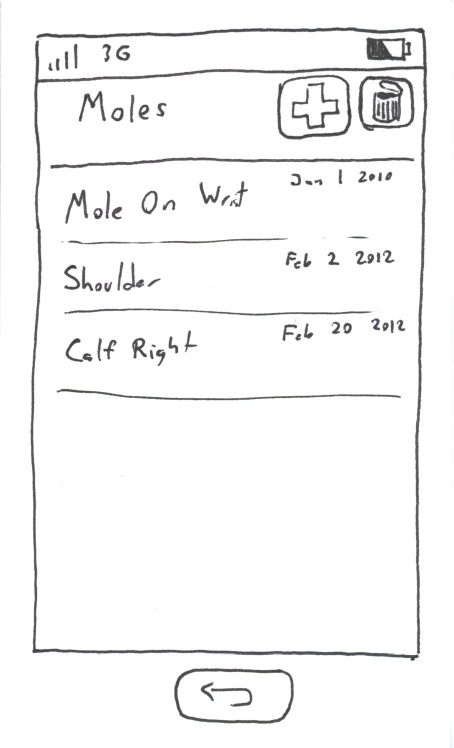 3G
Moles
Mole On Wrist Jan 1 2010
Shoulder Feb 2 2012
Calf Right Feb 20 2012